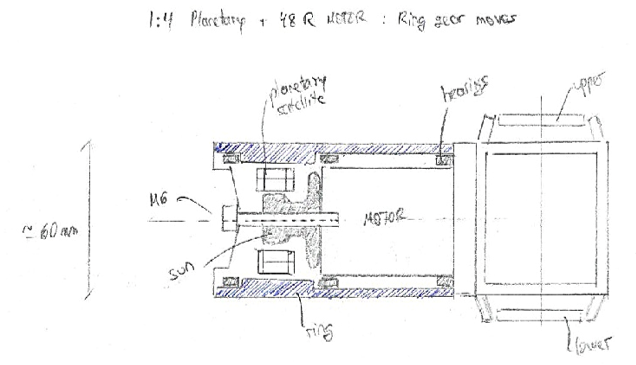 1:4 Planetary + 48R MOTOR : Ring gear moves
planetary
satellite
bearings
upper
M6
MOTOR
≈ 60 mm
sun
ring
lower